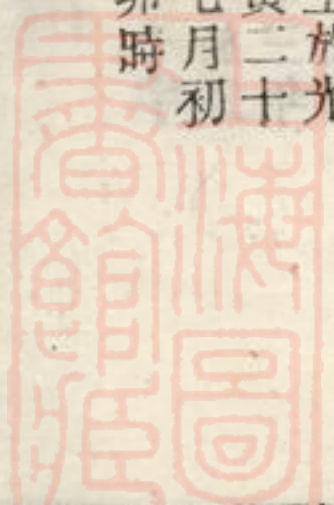 於光
寅二十
月初
卯時
上海圖
書館藏